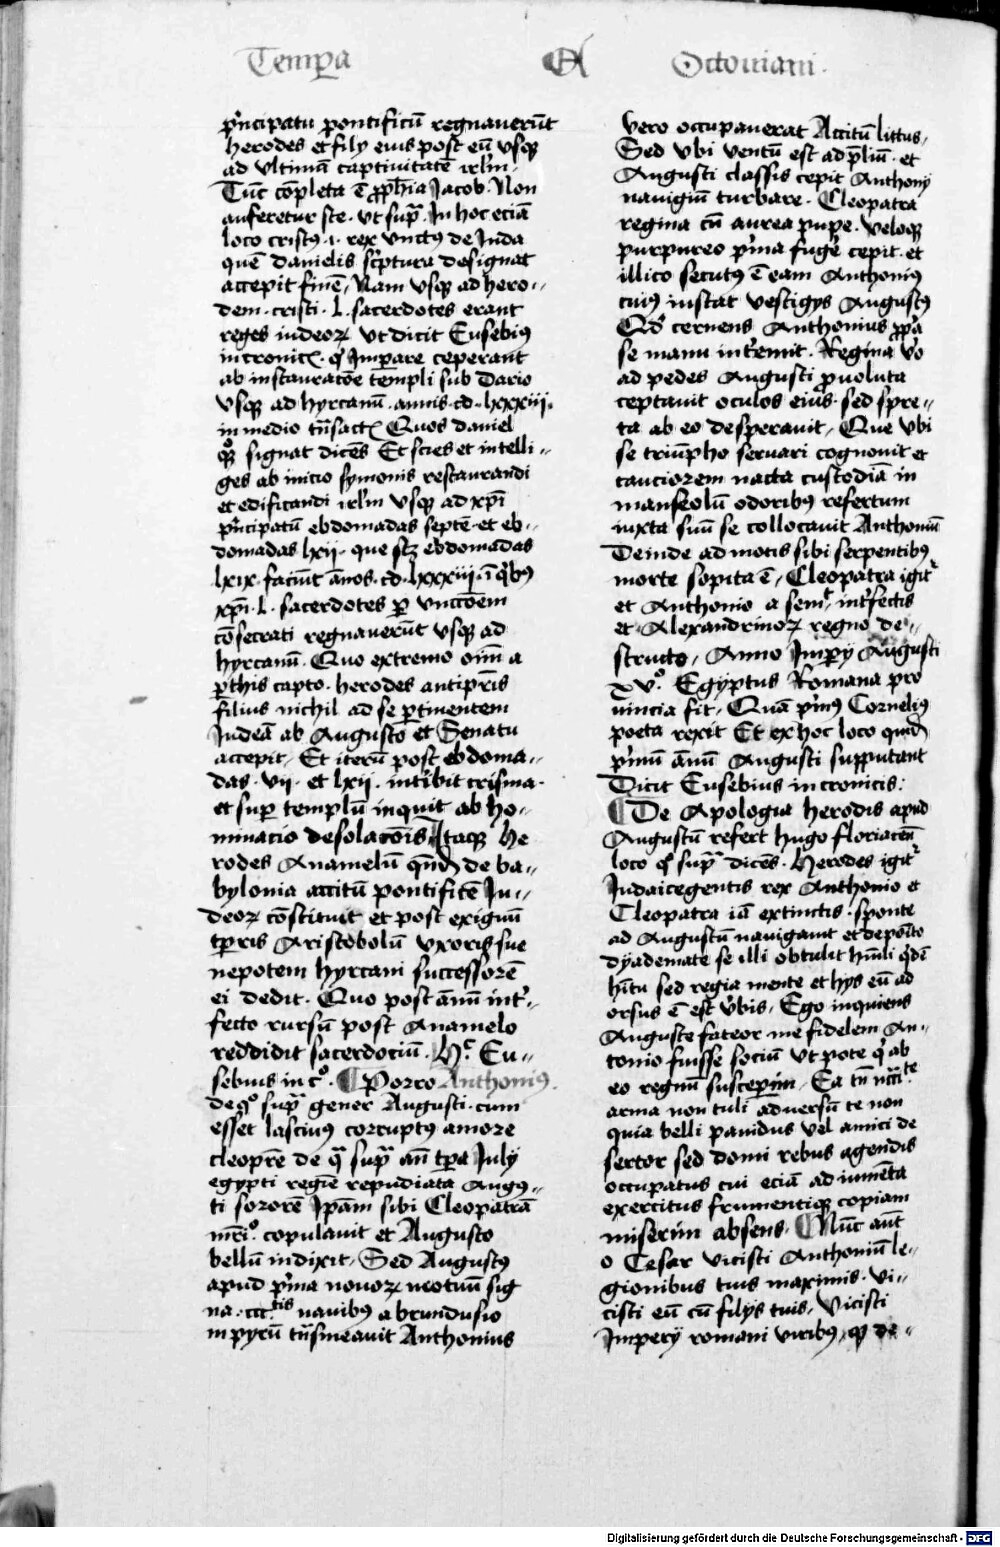 Temp̱a Octouiani.
p̓ncipatu pontificū regnauerūt
herodes et filij eius post eū vsqꝫ
ad vltimā captiuitatē ir̄lm̄.
Tūc cōpleta ē ꝓph̄ia Jacob. Non
auferetur sce. vt sup̄. In hoc eciā
loco cristꝰ .i. rex vnctꝰ de Juda
quē danielis scptura designat
accepit finē, Nam vsqꝫ ad hero-
dem. cristi .l. sacerdotes erant
reges iudeoꝝ vt dicit Eusebiꝰ
in cronicꝭ. q̄ Imꝑare ceperant
ab instauracōe templi sub Dario
vsqꝫ ad hyrcanū. annis. cd. lxxxiij.
in medio tn̄sactꝭ Quos daniel
signat dicēs Et scies et intelli-
ges ab inicio symonis restaurandi
et edificandi ir̄lm̄ vsqꝫ ad xp̄i
p̓ncipatū ebdomadas septē et eb-
domadas lxij. que scꝫ ebdomadas
lxix. faciūt ānos. cd. lxxxiij. ī q̓bꝰ
xp̄i .l. sacerdotes ꝑ vnccōem
cōsecrati regnauerūt vsqꝫ ad
hyrcanū. Quo extremo oīm a
ꝑthis capto. herodes antipr̄is
filius nichil ad se ꝑtinentem
Judeā ab Augusto et Senatu
accepit. Et iterū post ebdoma-
das. vij. et lxij. int̓ibit crisma.
et super templū inquit ab ho-
minacio desolacōis Itaqꝫ he
rodes Anamelū qn̄dā de ba-
bylonia accitū pontificē Ju-
deoꝝ cōstituit et post exiguū
tꝑis Aristobolū vxoris sue
nepotem hyrcani successorē
ei dedit. Quo post ānū int̓-
fecto rursū post Anamelo
reddidit sacerdociū. Hc̄ Eu-
sebius in c̊. ¶ Porro Anthoniꝰ.
de q̊ sup̄ gener Augusti. cum
esset lasciuꝰ corruptꝰ amore
cleopr̄e de q̄ sup̄ an̄ tꝑa July
egypti regie repudiata Augus-
ti sororē Ip̄am sibi Cleopatrā
mr̄i̊. copulauit et Augusto
bellū indixit. Sed Augustꝰ
apud p̓ma nouoꝝ sig
na .ccc.tis nauibꝰ a brundusio
in pyrū tn̄smeauit Anthonius
vero occupauerat Accitū littus.
Sed vbi ventū est ad p̄liū. et
Augusti classis cepit Anthonij
nauigiū turbare. Cleopatra
regina cū aurea pupe. veloqꝫ
purpureo p̓ma fugē cepit. et
illico secutꝰ ē eam Anthoniꝰ
cuiꝰ instat vestigijs Augustꝰ
Qd̓ cernens Anthonius ꝓp̓a
se manu int̓emit. Regina v̊o
ad pedes Augusti ꝓuoluta
ceptauit oculos eius. sed spre-
ta ab eo desꝑauit. Que vbi
se triūpho seruari cognouit et
cauciorem nacta custodiā in
mauseolū odoribꝰ refertum
iuxta suū se collocauit Anthoniū
Deinde ad motis sibi serpentibꝰ
morte sopita ē. Cleopatra igit̄
et Anthonio a semꝭ int̓fectis
et Alexandrinoꝝ regno de-
structo. Anno Imperij Augusti
xv̊. Egyptus Romana pro
uincia fit. Quā p̓mꝰ Corneliꝰ
poeta rexit Et ex hoc loco quidā
p̓mū ānū Augusti supputant
Dicit Eusebius in cronicis:
¶ De Apologia herodis apud
Augustū refert hugo floriaceñ
loco q̄ sup̄ dicēs. Herodes igit̄
Judaice gentis rex Anthonio et
Cleopatra iā extinctis. sponte
ad Augustū nauigauit et deposito
dyademate se illi obtulit hūili q̓dē
hītu sed regia mente et hijs eū ad
orsus ē est v̓bis. Ego inquiens
Auguste fateor me fidelem An-
tonio fuisse sociū vt pote q̓ ab
eo regnū susceperim. Ea tn̄
arma non tuli aduersū te non
quia belli pauidus vel amici de
sertor sed domi rebus agendis
occupatus cui eciā ad iumēta
exercitus frumentiqꝫ copiam
miserim absens. ¶ Nūc aūt
o Cesar vicisti Anthoniū le-
gionibus tuis maximis. vi-
cisti eū cū filijs tuis. Vicisti
Imperij romani viribꝰ, qꝫ de-
Digitalisierung gefördert durch die Deutsche Forschungsgemeinschaft - DFG